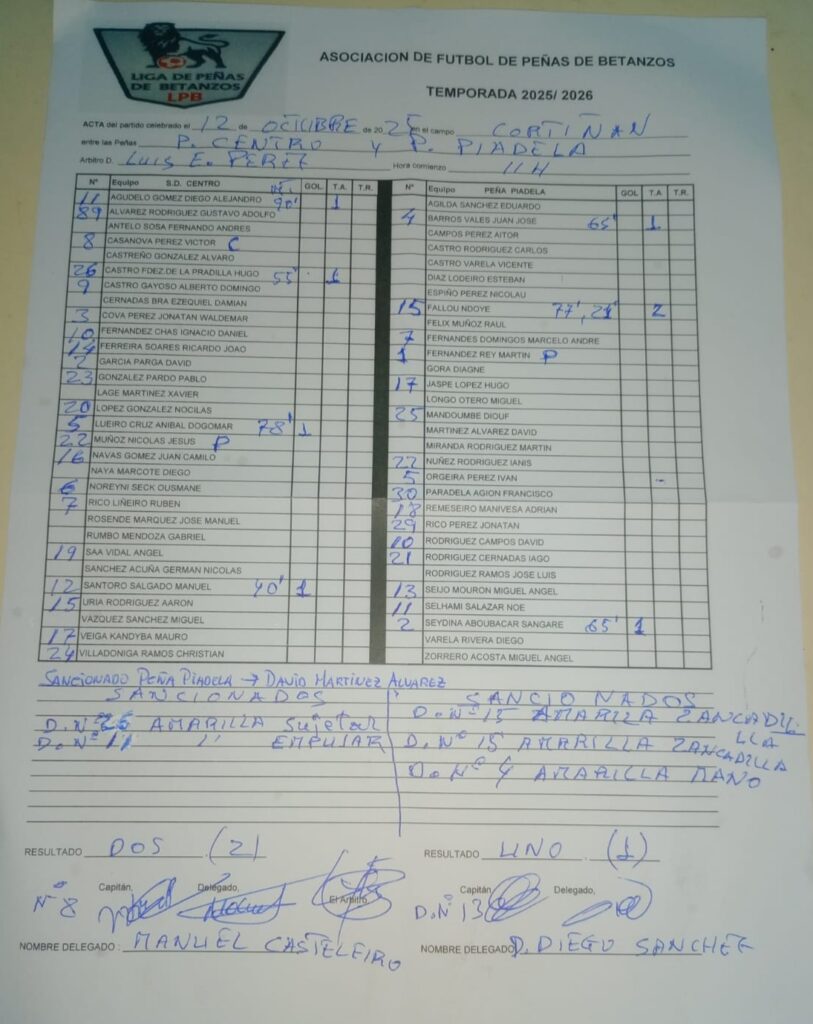 LIGA DE PEÑAS
DE BETANZOS
LPB
ASOCIACION DE FUTBOL DE PEÑAS DE BETANZOS
TEMPORADA 2025/ 2026
ACTA del partido celebrado el 12 de OCTUBRE de 2025 en el campo CORTIÑAN
entre las Peñas P. CENTRO Y P. PIADELA
Arbitro D. LUIS E. PEREZ Hora comienzo 11 H
Nº Equipo S.D. CENTRO GOL T.A. T.R.
11 AGUDELO GOMEZ DIEGO ALEJANDRO 90' 1
89 ALVAREZ RODRIGUEZ GUSTAVO ADOLFO
ANTELO SOSA FERNANDO ANDRES
8 CASANOVA PEREZ VICTOR C
CASTREÑO GONZALEZ ALVARO
26 CASTRO FDEZ.DE LA PRADILLA HUGO 55' 1
9 CASTRO GAYOSO ALBERTO DOMINGO
CERNADAS BRA EZEQUIEL DAMIAN
3 COVA PEREZ JONATAN WALDEMAR
10 FERNANDEZ CHAS IGNACIO DANIEL
14 FERREIRA SOARES RICARDO JOAO
2 GARCIA PARGA DAVID
23 GONZALEZ PARDO PABLO
LAGE MARTINEZ XAVIER
20 LOPEZ GONZALEZ NOCILAS
5 LUEIRO CRUZ ANIBAL DOGOMAR 78' 1
22 MUÑOZ NICOLAS JESUS P
16 NAVAS GOMEZ JUAN CAMILO
NAYA MARCOTE DIEGO
6 NOREYNI SECK OUSMANE
7 RICO LIÑEIRO RUBEN
ROSENDE MARQUEZ JOSE MANUEL
RUMBO MENDOZA GABRIEL
19 SAA VIDAL ANGEL
SANCHEZ ACUÑA GERMAN NICOLAS
12 SANTORO SALGADO MANUEL 40' 1
15 URIA RODRIGUEZ AARON
VAZQUEZ SANCHEZ MIGUEL
17 VEIGA KANDYBA MAURO
24 VILLADONIGA RAMOS CHRISTIAN
Nº Equipo PEÑA PIADELA GOL T.A T.R.
AGILDA SANCHEZ EDUARDO
4 BARROS VALES JUAN JOSE 65' 1
CAMPOS PEREZ AITOR
CASTRO RODRIGUEZ CARLOS
CASTRO VARELA VICENTE
DIAZ LODEIRO ESTEBAN
ESPIÑO PEREZ NICOLAU
15 FALLOU NDOYE 77', 21' 2
FELIX MUÑOZ RAUL
7 FERNANDES DOMINGOS MARCELO ANDRE
1 FERNANDEZ REY MARTIN P
GORA DIAGNE
17 JASPE LOPEZ HUGO
LONGO OTERO MIGUEL
25 MANDOUMBE DIOUF
MARTINEZ ALVAREZ DAVID
MIRANDA RODRIGUEZ MARTIN
22 NUÑEZ RODRIGUEZ IANIS
5 ORGEIRA PEREZ IVAN
30 PARADELA AGION FRANCISCO
18 REMESEIRO MANIVESA ADRIAN
29 RICO PEREZ JONATAN
10 RODRIGUEZ CAMPOS DAVID
21 RODRIGUEZ CERNADAS IAGO
RODRIGUEZ RAMOS JOSE LUIS
13 SEIJO MOURON MIGUEL ANGEL
11 SELHAMI SALAZAR NOE
2 SEYDINA ABOUBACAR SANGARE 65' 1
VARELA RIVERA DIEGO
ZORRERO ACOSTA MIGUEL ANGEL
SANCIONADO PEÑA PIADELA → DAVID MARTINEZ ALVAREZ
SANCIONADOS
D. Nº 26 AMARILLA Sujetar
D. Nº 11 " EMPUJAR
SANCIONADOS
D. Nº 15 AMARILLA ZANCADILLA
D. Nº 15 AMARILLA ZANCADILLA
D. Nº 4 AMARILLA MANO
RESULTADO DOS (2)
RESULTADO UNO (1)
Capitán, Delegado, El Arbitro,
Nº 8
Capitán, Delegado,
D. Nº 13
NOMBRE DELEGADO : MANUEL CASTELEIRO
NOMBRE DELEGADO D. DIEGO SANCHEZ